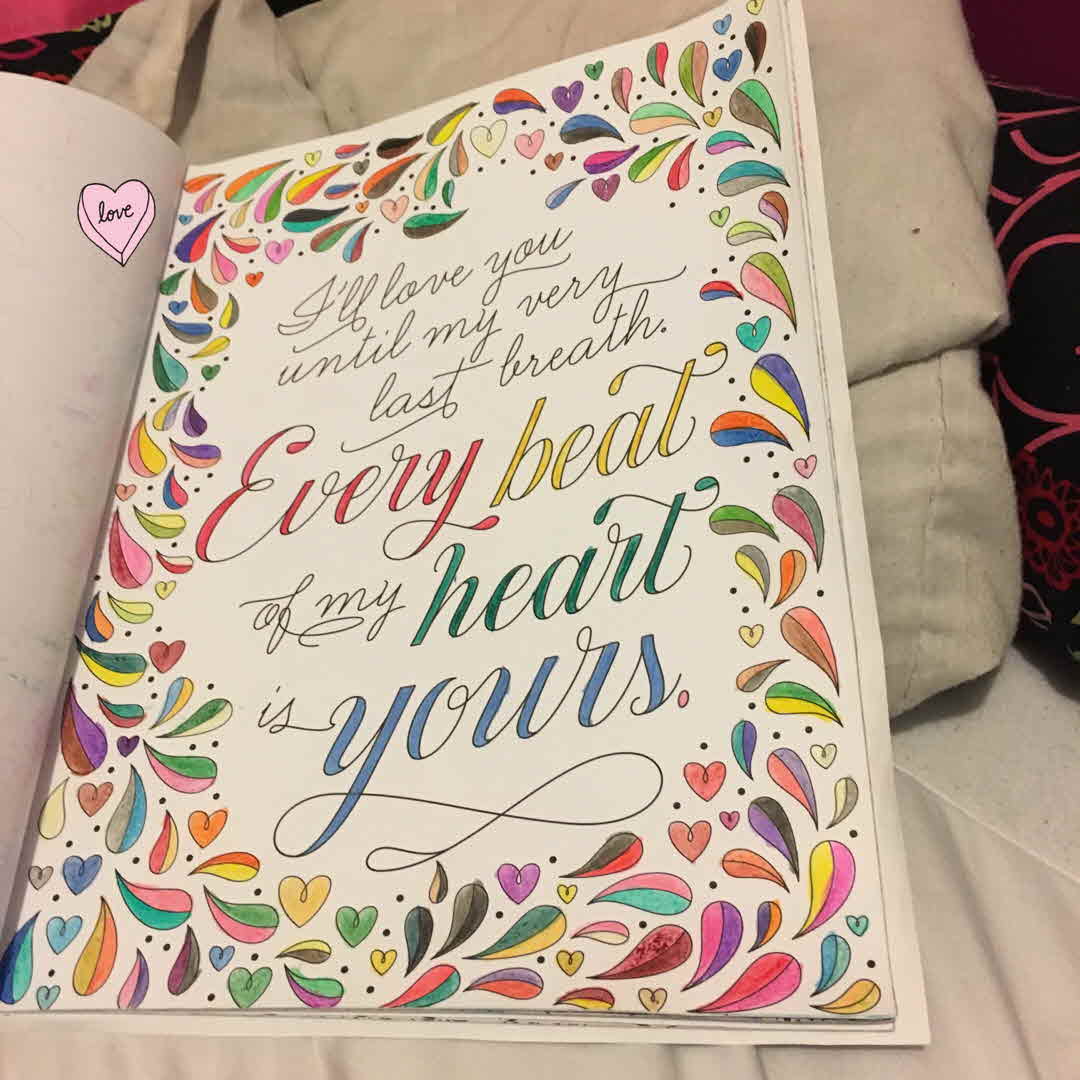 love
I'll love you
until my very
last breath.
Every beat
of my heart
is yours.